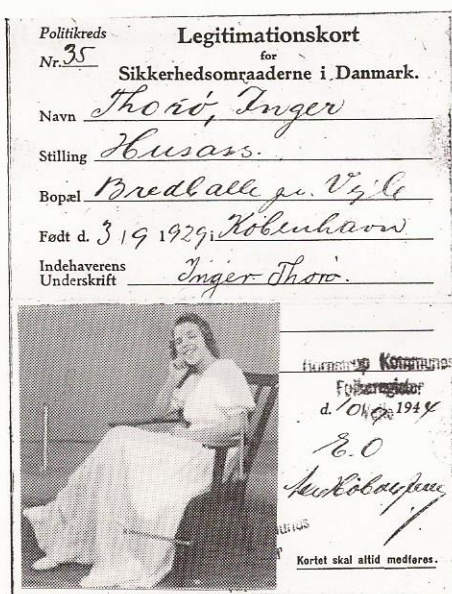 Politikreds
Nr. 35
Legitimationskort
for
Sikkerhedsomraaderne i Danmark.
Navn Thorö, Inger
Stilling Husass.
Bopæl Bredballe pr. Vejle
Født d. 3/9 1929 i København
Indehaverens
Underskrift Inger Thorö.
Hornstrup Kommunes
Folkeregister
d. 10/2 1944
E.O
Kortet skal altid medføres.